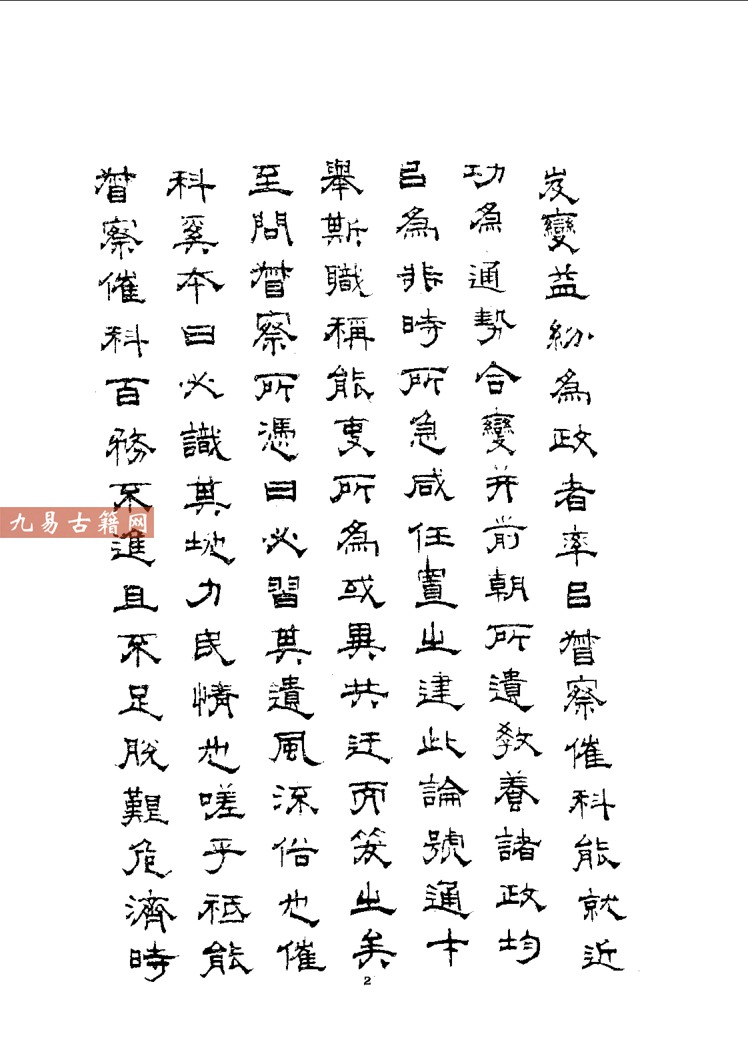 岌變益紛為政者率㠯督察催科能就近
功為通勢合變并前朝所遺教養諸政均
㠯為非時所急咸任置之建此論號通才
舉斯職稱能吏所為或異共迂而笑之矣
至問督察所憑曰必習其遺風流俗也催
科奚本曰必識其地力民情也嗟乎祇能
督察催科百務不進且不足脫艱危濟時
2
九易古籍网